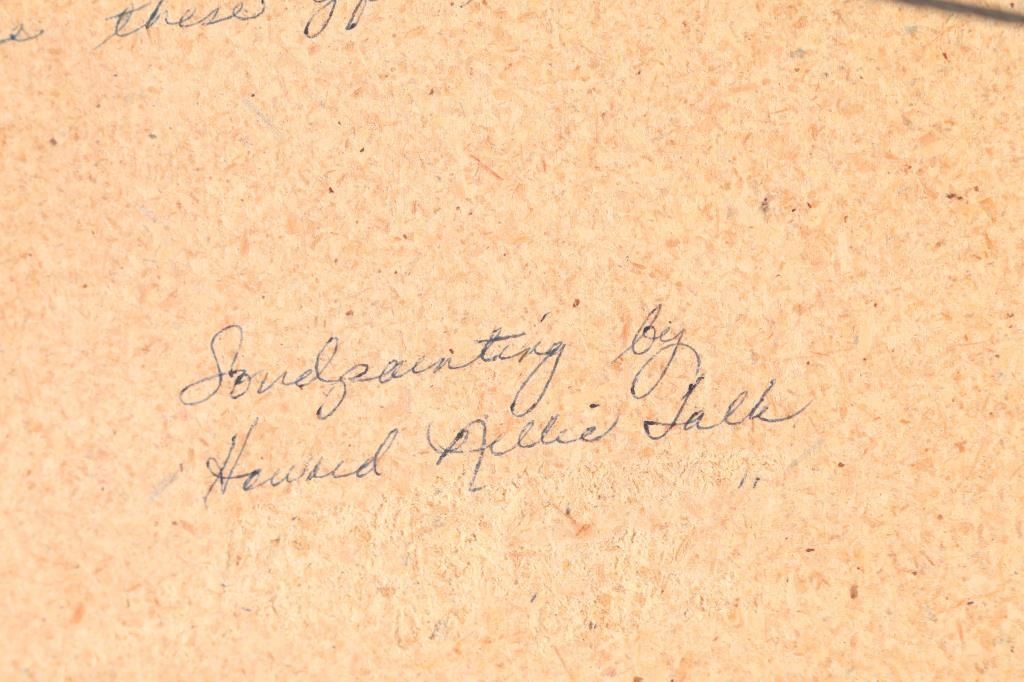 these
Sandpainting by
Howard Nellie Talk